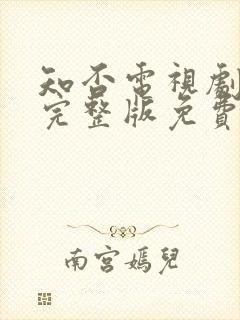 知否電視劇
完整版免費
南宮嫣兒